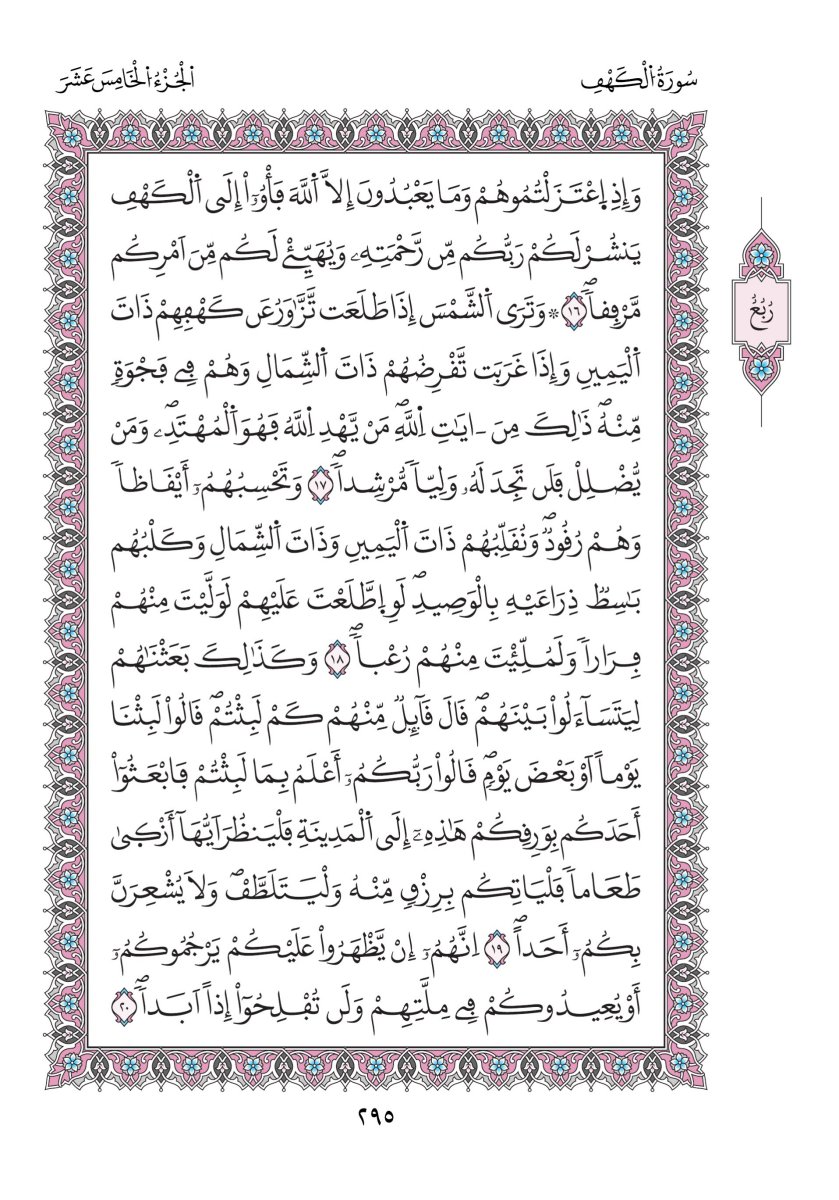 سُورَةُ اُ۬لْكَهْفِ
اَ۬لْجُزْءُ اُ۬لْخَامِسَ عَشَرَ
وَإِذِ اِ۪عْتَزَلْتُمُوهُمْ وَمَا يَعْبُدُونَ إِلَّا اَ۬للَّهَ فَأْوُۥٓاْ إِلَى اَ۬لْكَهْفِ
يَنشُرْ لَكُمْ رَبُّكُم مِّن رَّحْمَتِهِۦ وَيُهَيِّۓْ لَكُم مِّنَ اَمْرِكُم
مَّرْفِقاٗۖ ١٦ ۞ وَتَرَى اَ۬لشَّمْسَ إِذَا طَلَعَت تَّزَّٰوَرُ عَن كَهْفِهِمْ ذَاتَ
اَ۬لْيَمِينِ وَإِذَا غَرَبَت تَّقْرِضُهُمْ ذَاتَ اَ۬لشِّمَالِ وَهُمْ فِے فَجْوَةٖ
مِّنْهُۖ ذَٰلِكَ مِنَ ـ اٰيَٰتِ اِ۬للَّهِۖ مَنْ يَّهْدِ اِ۬للَّهُ فَهُوَ اَ۬لْمُهْتَدِۦۖ وَمَنْ
يُّضْلِلْ فَلَن تَجِدَ لَهُۥ وَلِيّاٗ مُّرْشِداٗۖ ١٧ وَتَحْسِبُهُمُۥٓ أَيْقَاظاٗ
وَهُمْ رُقُودٞۖ وَنُقَلِّبُهُمْ ذَاتَ اَ۬لْيَمِينِ وَذَاتَ اَ۬لشِّمَالِ وَكَلْبُهُم
بَٰسِطٞ ذِرَاعَيْهِ بِالْوَصِيدِۖ لَوِ اِ۪طَّلَعْتَ عَلَيْهِمْ لَوَلَّيْتَ مِنْهُمْ
فِرَاراٗ وَلَمُلِّئْتَ مِنْهُمْ رُعْباٗۖ ١٨ وَكَذَٰلِكَ بَعَثْنَٰهُمْ
لِيَتَسَآءَلُواْ بَيْنَهُمْۖ قَالَ قَآئِلٞ مِّنْهُمْ كَمْ لَبِثْتُمْۖ قَالُواْ لَبِثْنَا
يَوْماً اَوْ بَعْضَ يَوْمٖۖ قَالُواْ رَبُّكُمُۥٓ أَعْلَمُ بِمَا لَبِثْتُمْ فَابْعَثُوٓاْ
أَحَدَكُم بِوَرِقِكُمْ هَٰذِهِۦٓ إِلَى اَ۬لْمَدِينَةِ فَلْيَنظُرَ اَيُّهَآ أَزْك۪ىٰ
طَعَاماٗ فَلْيَاتِكُم بِرِزْقٖ مِّنْهُ وَلْيَتَلَطَّفْۖ وَلَا يُشْعِرَنَّ
بِكُمُۥٓ أَحَداًۖ ١٩ اِنَّهُمُۥٓ إِنْ يَّظْهَرُواْ عَلَيْكُمْ يَرْجُمُوكُمُۥٓ
أَوْ يُعِيدُوكُمْ فِے مِلَّتِهِمْ وَلَن تُفْلِحُوٓاْ إِذاً اَبَداٗۖ ٢٠
رُبُعُ
٢٩٥